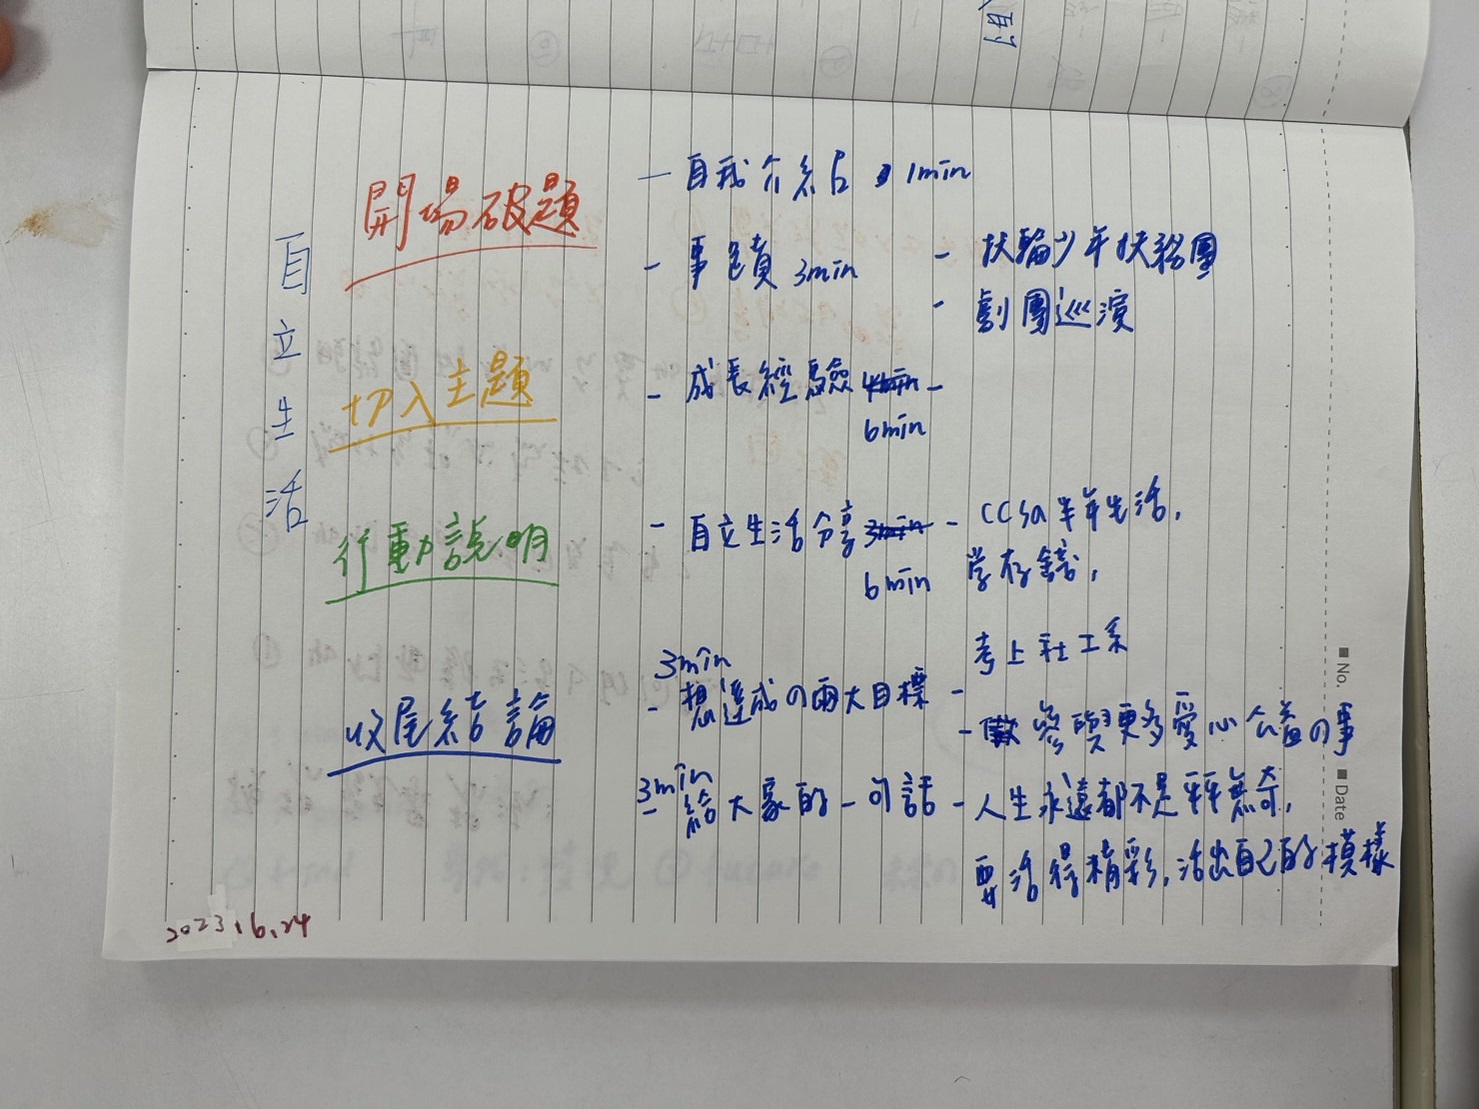 的
自立生活
開場破題
- 自我介紹 1min
- 事蹟 3min
- 扶輪少年扶務團
- 劇團巡演
切入主題
- 成長經驗 4min -
6min
行動說明
- 自立生活分享 3min - CCSA半年生活,
6min 學存錢,
考上社工系
收尾結論
3min
- 想達成の兩大目標 -
- 參與更多愛心公益の事
3min
- 給大家的一句話 - 人生永遠都不是平平無奇,
要活得精彩,活出自己的模樣
2023.6.24
■ No.
■ Date